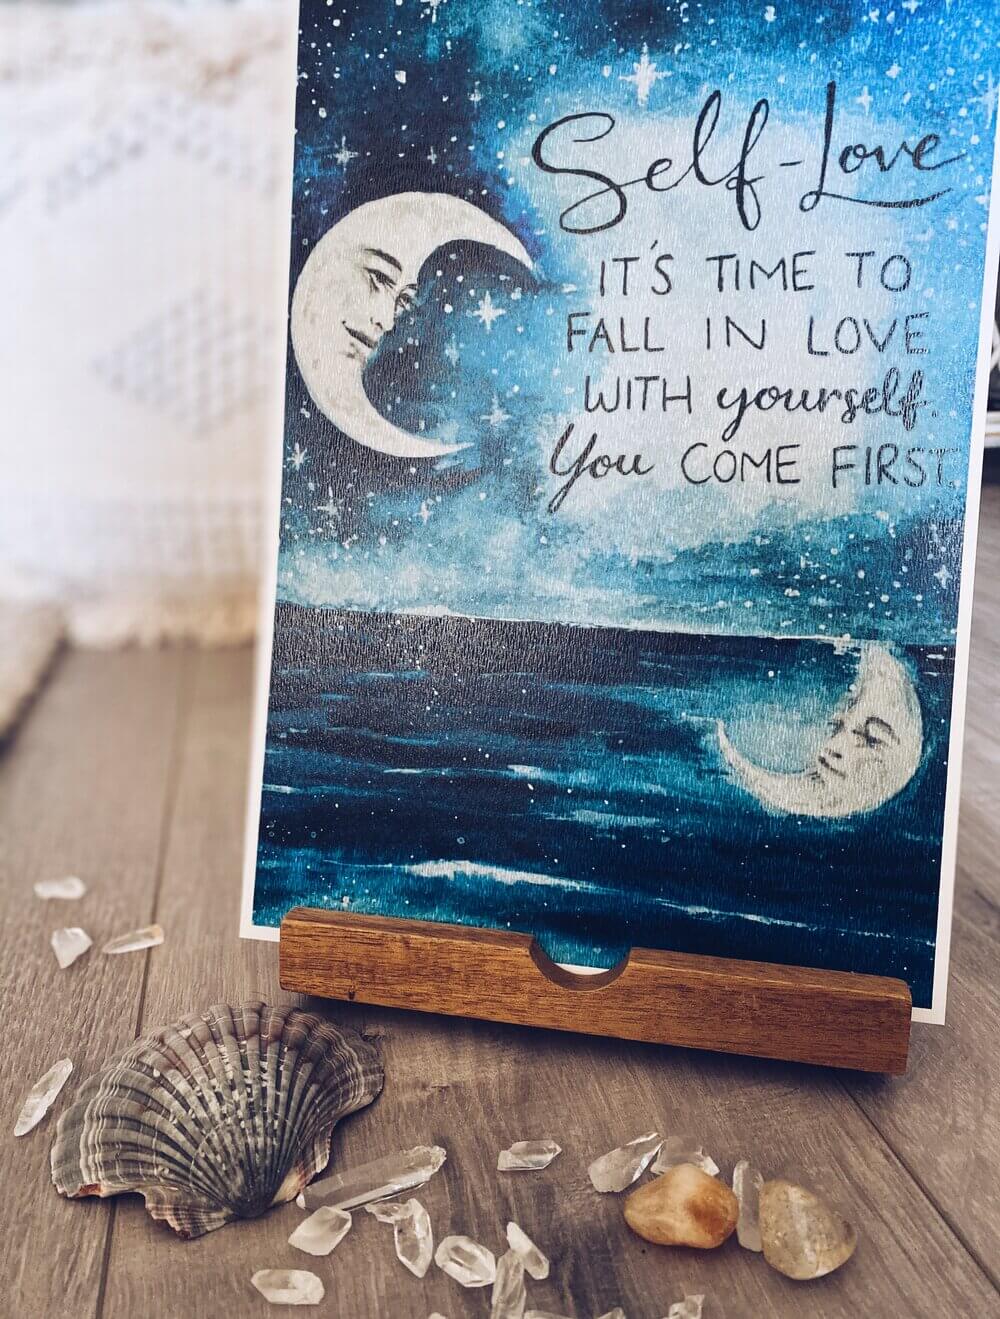 Self-Love
IT'S TIME TO
FALL IN LOVE
WITH yourself.
You COME FIRST.